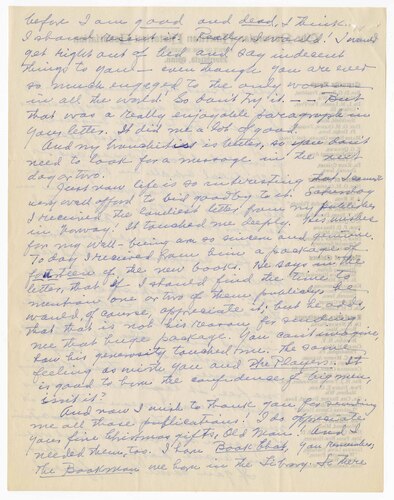 before I am good and dead, I think.
I should resent it. Really, I would! I would
get right out of bed and say indecent
things to you — even though you are ever
so much engaged to the only woman
in all the world. So don't try it. -- But
that was a really enjoyable paragraph in
your letter. It did me a lot of good.
And my bronchitis is better, so you don't
need to look for a message in the next
day or two.
Just now life is so interesting that I cannot
very well afford to bid good-by to it. Saturday
I received the kindest letter from my publisher
in Norway! It touched me deeply. His wishes
for my well-being are so sincere and genuine.
Today I received from him a package of
fourteen of the new books. He says in the
letter, that if I should find the time to
mention one or two of them publicly, he
would, of course, appreciate it, but he adds,
that that is not his reason for sending
me that huge package. You can imagine
how his generosity touched me. The same
feeling as with you and The Players. It
is good to have the confidence of big men,
isn't it?
And now I wish to thank you for sending
me all those publications! I do appreciate
your fine Christmas gifts, Old Man! And I
needed them, too. I have Book Chat, you remember,
The Bookman we have in the Library. So there